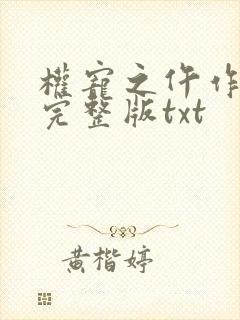 權寵之仵作
完整版txt
黄楷婷